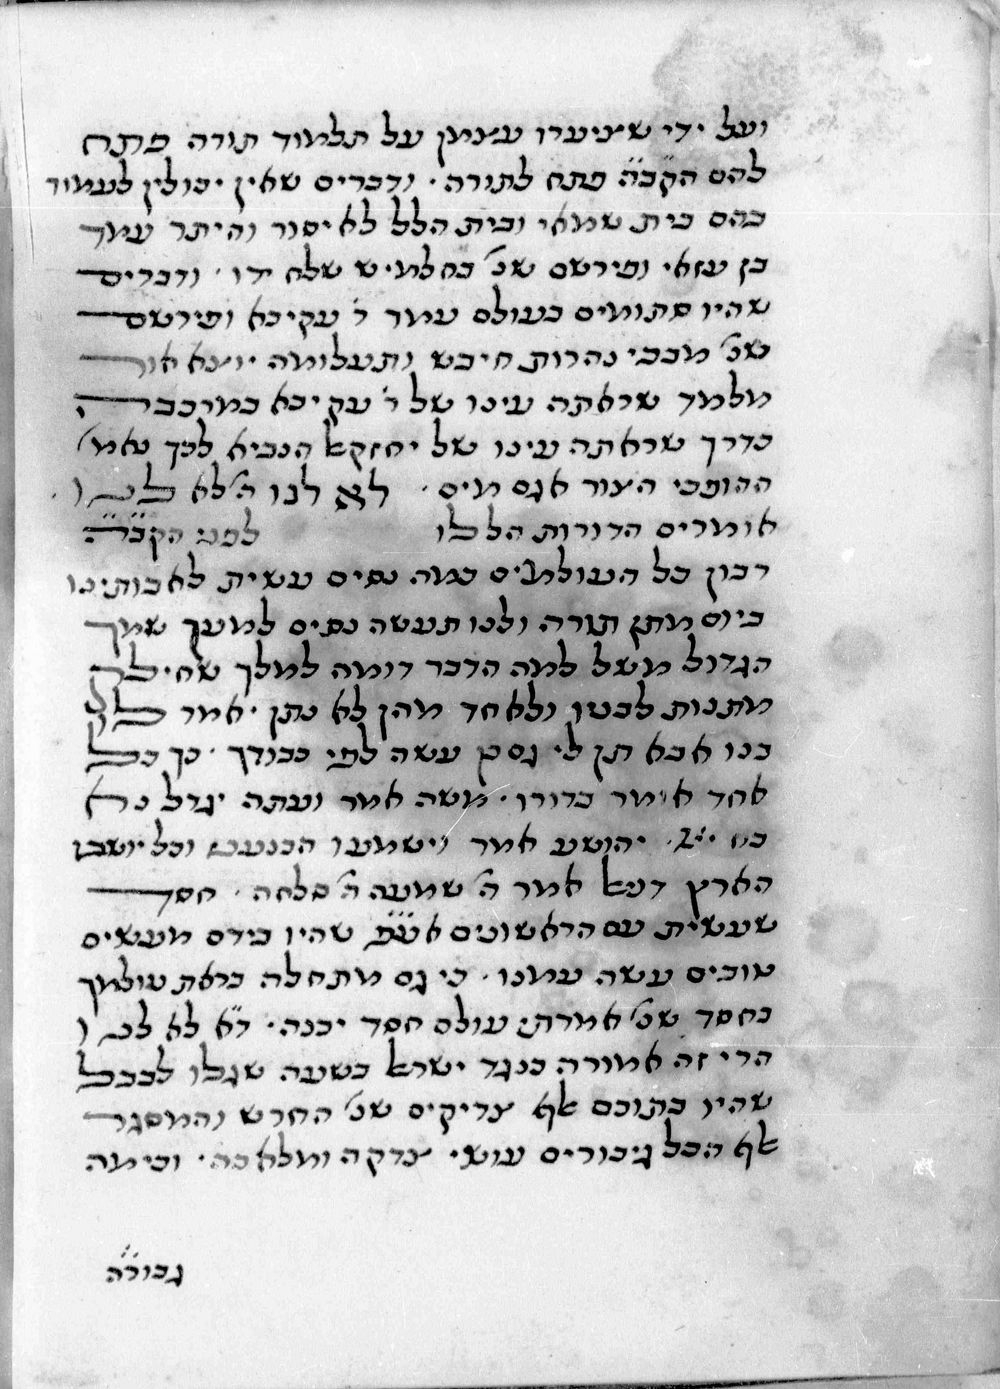 ועל ידי שציערו עצמן על תלמוד תורה פתח
להם הקב״ה פתח לתורה · ודברים שאין יכולין לעמוד
בהם בית שמאי ובית הלל לאיסור והיתר עמד
בן עזאי ופירשם שנ׳ בחלמיש שלח ידו · ודברים
שהיו סתומים בעולם עמד ר׳ עקיבא ופירשם
שנ׳ מבכי נהרות חיבש ותעלומה יוצא אור
מלמד שראתה עינו של ר׳ עקיבא במרכבה
כדרך שראתה עינו של יחזקאל הנביא לכך נאמ׳
ההופכי הצור אגם מים · לא לנו ה׳ לא לנו ·
אומרים הדורות הללו לפני הקב״ה
רבון כל העולמים כמה נסים עשית לאבותינו
ביום מתן תורה ולנו תעשה נסים למען שמך
הגדול משל למה הדבר דומה למלך שחילק
מתנות לבניו ולאחד מהן לא נתן · אמר לו
בנו אבא תן לי גם עשה לפי כבודך · כך כל
אחד אומר בדורו · משה אמר ועתה יגדל נא
כח יי׳ · יהושע אמר וישמעו הכנעני וכל יושבי
הארץ דניאל אמר ה׳ שמעה ה׳ סלחה · חסד
שעשית עם הראשונים אע״פ שהיו בידם מעשים
טובים עשה עמנו · כי גם מתחלה בראת עולמך
בחסד שנ׳ אמרתי עולם חסד יבנה · ד״א לא לנו
הרי זה אמורה כנגד ישראל בשעה שגלו לבבל
שהיו בתוכם אלף צדיקים שנ׳ החרש והמסגר
אלף הכל גיבורים עושי צדקה ומלאכה · וכימה
גבורה